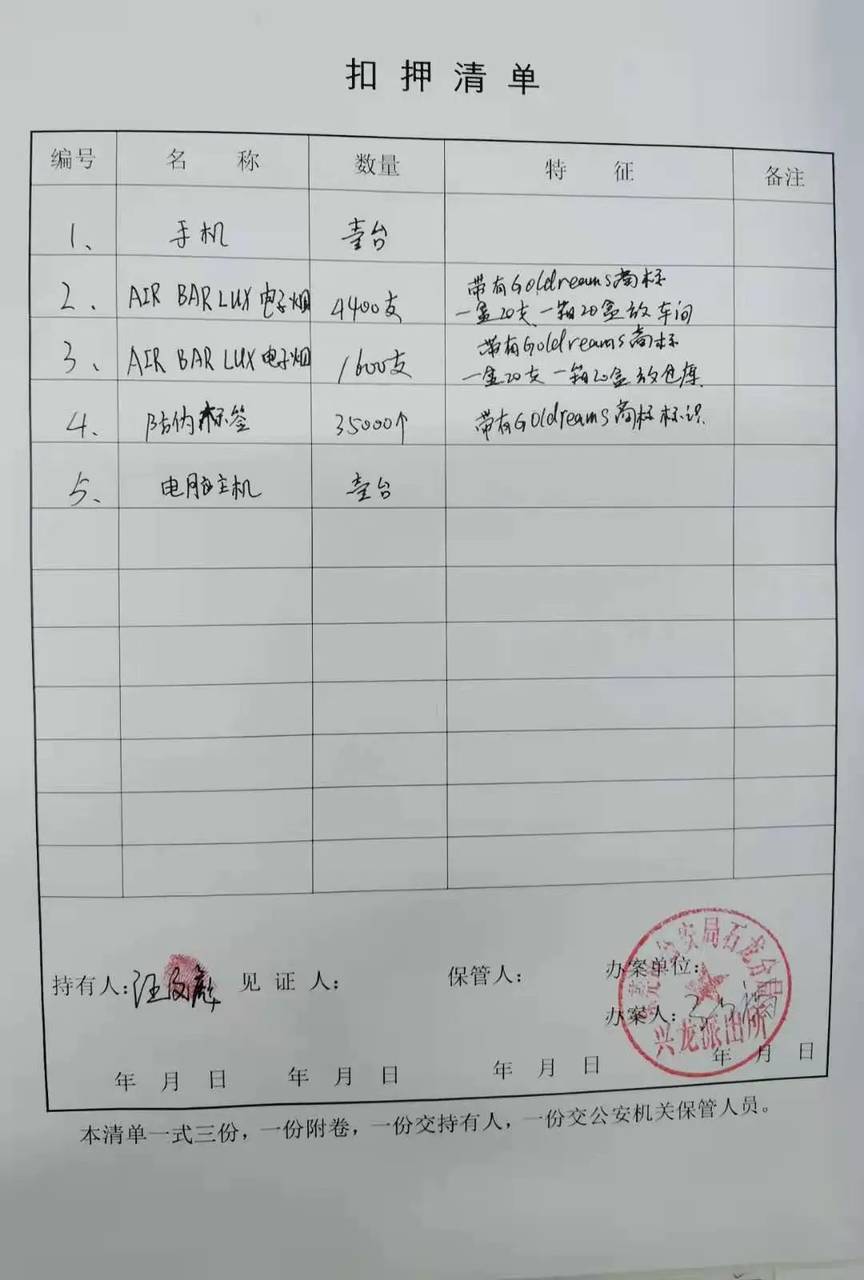 扣押清单
编号 名称 数量 特征 备注
1、 手机 壹台
2、 AIR BAR LUX 电子烟 4400支 带有Goldreams商标
一盒20支 一箱20盒 放车间
3、 AIR BAR LUX 电子烟 1600支 带有Goldreams商标
一盒20支 一箱20盒 放仓库
4、 防伪标签 35000个 带有Goldreams商标标识
5、 电脑主机 壹台
公安局石龙分局
持有人:汪文彪 见证人: 保管人: 办案单位:
办案人:
兴龙派出所
年 月 日 年 月 日 年 月 日 年 月 日
本清单一式三份，一份附卷，一份交持有人，一份交公安机关保管人员。